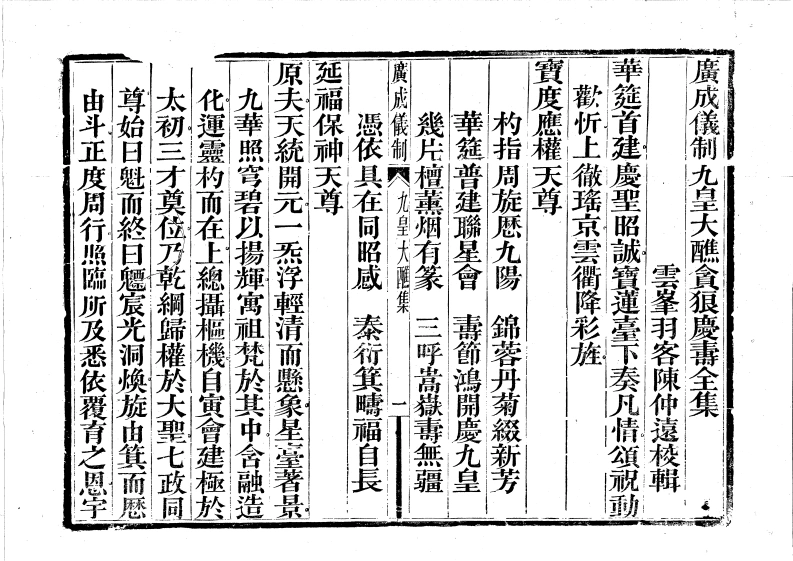 廣成儀制九皇大醮貪狼慶壽全集
雲峯羽客陳仲遠校輯
華筵首建慶聖昭誠寶蓮臺下奏凡情頌祝動
歡忻上徹瑤京雲衢降彩旌
寶度應權天尊
杓指周旋歷九陽　錦蓉丹菊綴新芳
華筵普建聯星會　壽節鴻開慶九皇
幾片檀薰烟有篆　三呼嵩嶽壽無疆
廣成儀制　九皇大醮集　一
憑依具在同昭感　泰衍箕疇福自長
延福保神天尊
原夫天統開元一炁浮輕清而懸象星臺著景
九華照穹碧以揚輝寓祖梵於其中含融造
化運靈杓而在上總攝樞機自寅會建極於
太初三才奠位乃乾綱歸權於大聖七政同
尊始曰魁而終曰魒宸光洞煥旋由箕而歷
由斗正度周行照臨所及悉依覆育之恩宇